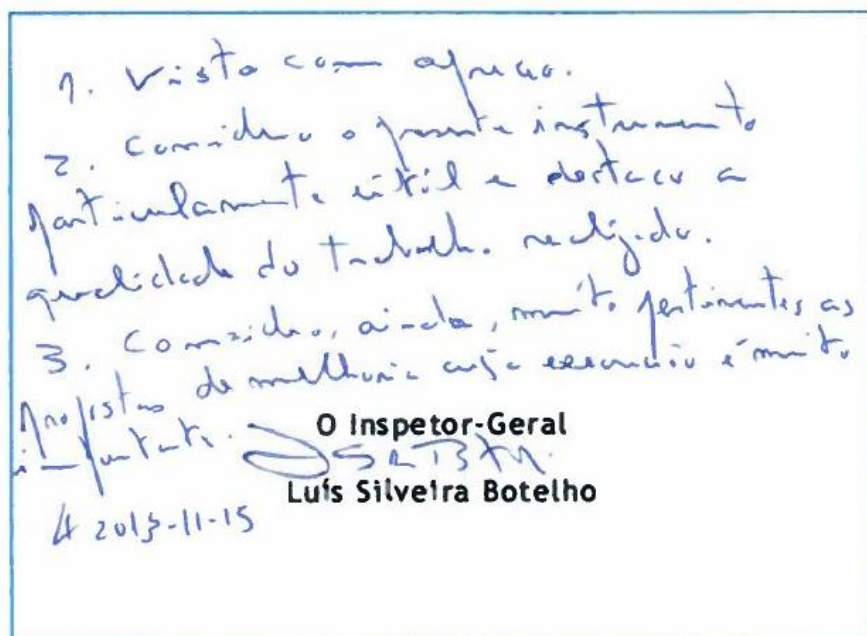 1. Visto com apreço.
2. Considero o presente instrumento
particularmente útil e destaco a
qualidade do trabalho realizado.
3. Considero, ainda, muito pertinentes as
propostas de melhoria cuja execução é muito
importante.
O Inspetor-Geral
Luís Silveira Botelho
2013-11-15